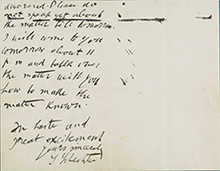 discovered. Please do
not speak yet about
the matter till tomorrow.
I will come to you
tomorrow about 11
p.m and talk over
the matter with you
how to make the
matter known.
In haste and
great excitement
Yours sincerely
S Schechter